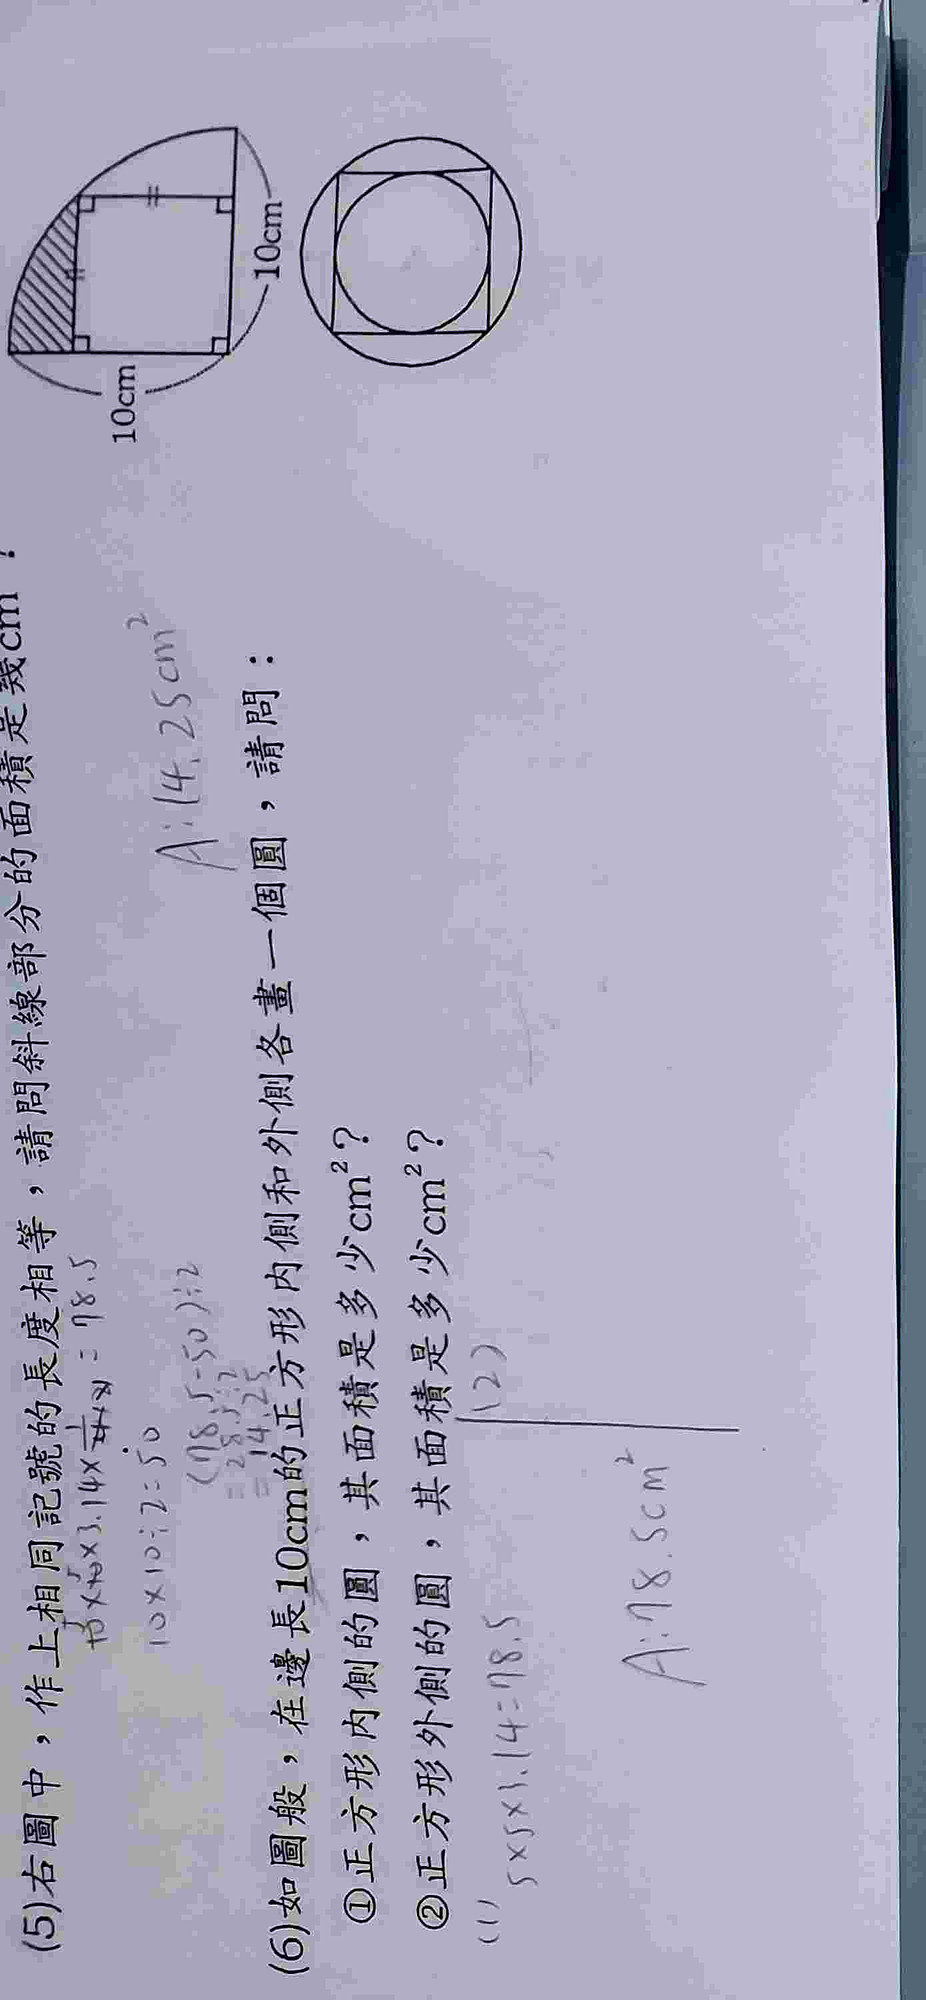 (5)右圖中，作上相同記號的長度相等，請問斜線部分的面積是幾cm ?
10×10×3.14× = 78.5
10×10÷2=50
(78.5-50)÷2
=28.5÷2
=14.25
A:14.25cm²
10cm
10cm
(6)如圖般，在邊長10cm的正方形內側和外側各畫一個圓，請問：
①正方形內側的圓，其面積是多少cm²？
②正方形外側的圓，其面積是多少cm²？
(1)
5×5×3.14=78.5
A:78.5cm²
(2)